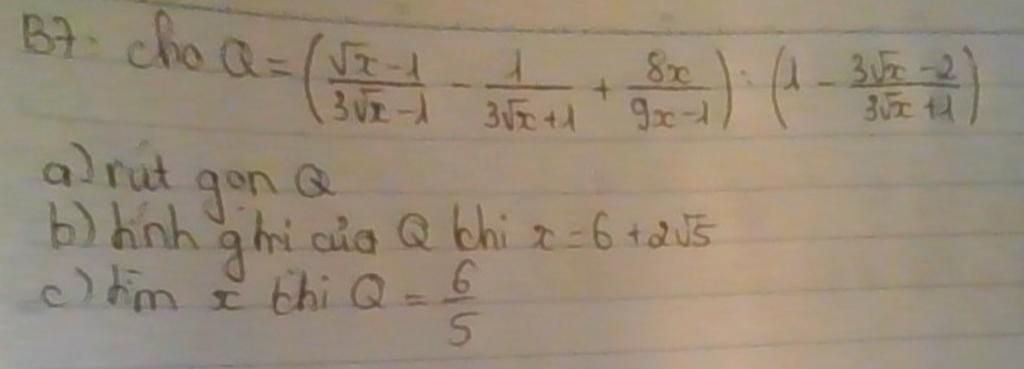 B7. cho Q = (\frac{√x -1}{3√x -1} - \frac{1}{3√x +1} + \frac{8x}{9x -1}) : (1 - \frac{3√x -2}{3√x +1})
a) rút gọn Q
b) tính g trị của Q khi x = 6 + 2√5
c) tìm x khi Q = \frac{6}{5}